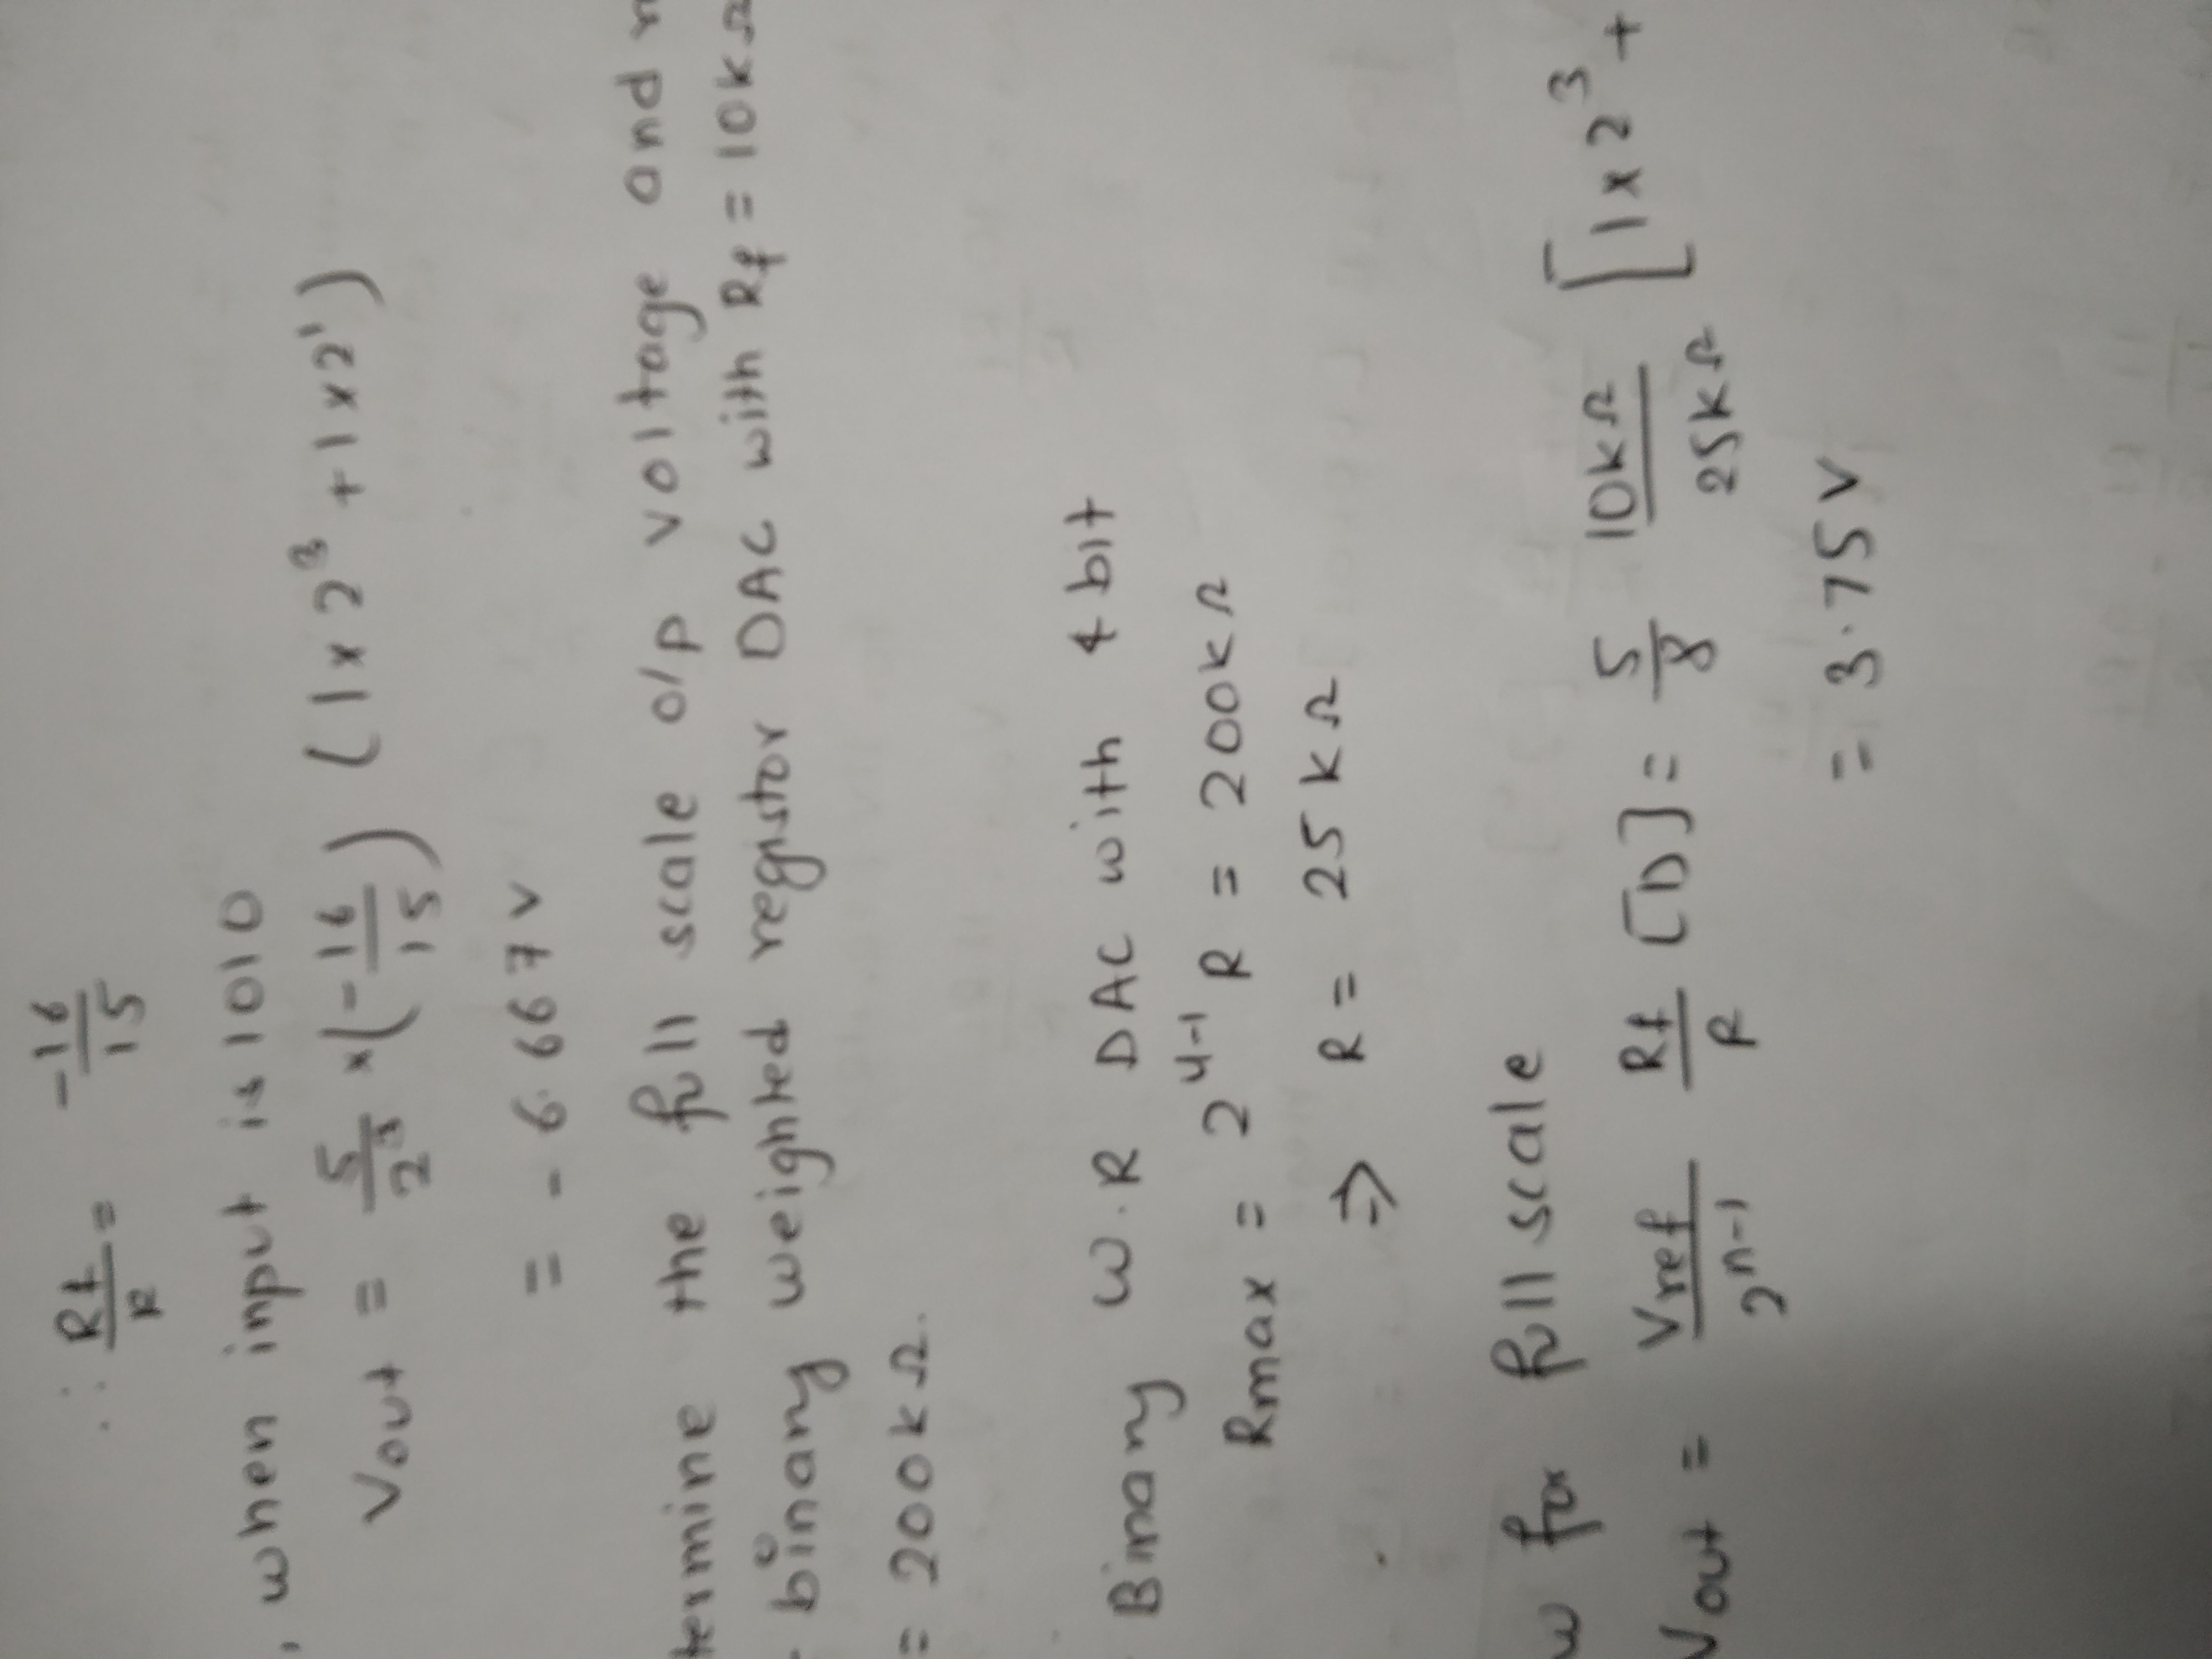 ∴ Rf/R = -16/15
, when input is 1010
Vout = 5/2³ × (-16/15) (1×2³ + 1×2¹)
= - 6.667 V
termine the full scale o/p voltage and
binary weighted registor DAC with Rf = 10kΩ
= 200kΩ.
Binary W.R DAC with 4 bit
Rmax = 2⁴⁻¹ R = 200kΩ
⇒ R = 25 kΩ
w for full scale
Vout = Vref/2ⁿ⁻¹ Rf/R [D] = 5/8 10kΩ/25kΩ [1×2³ +
= 3.75 V